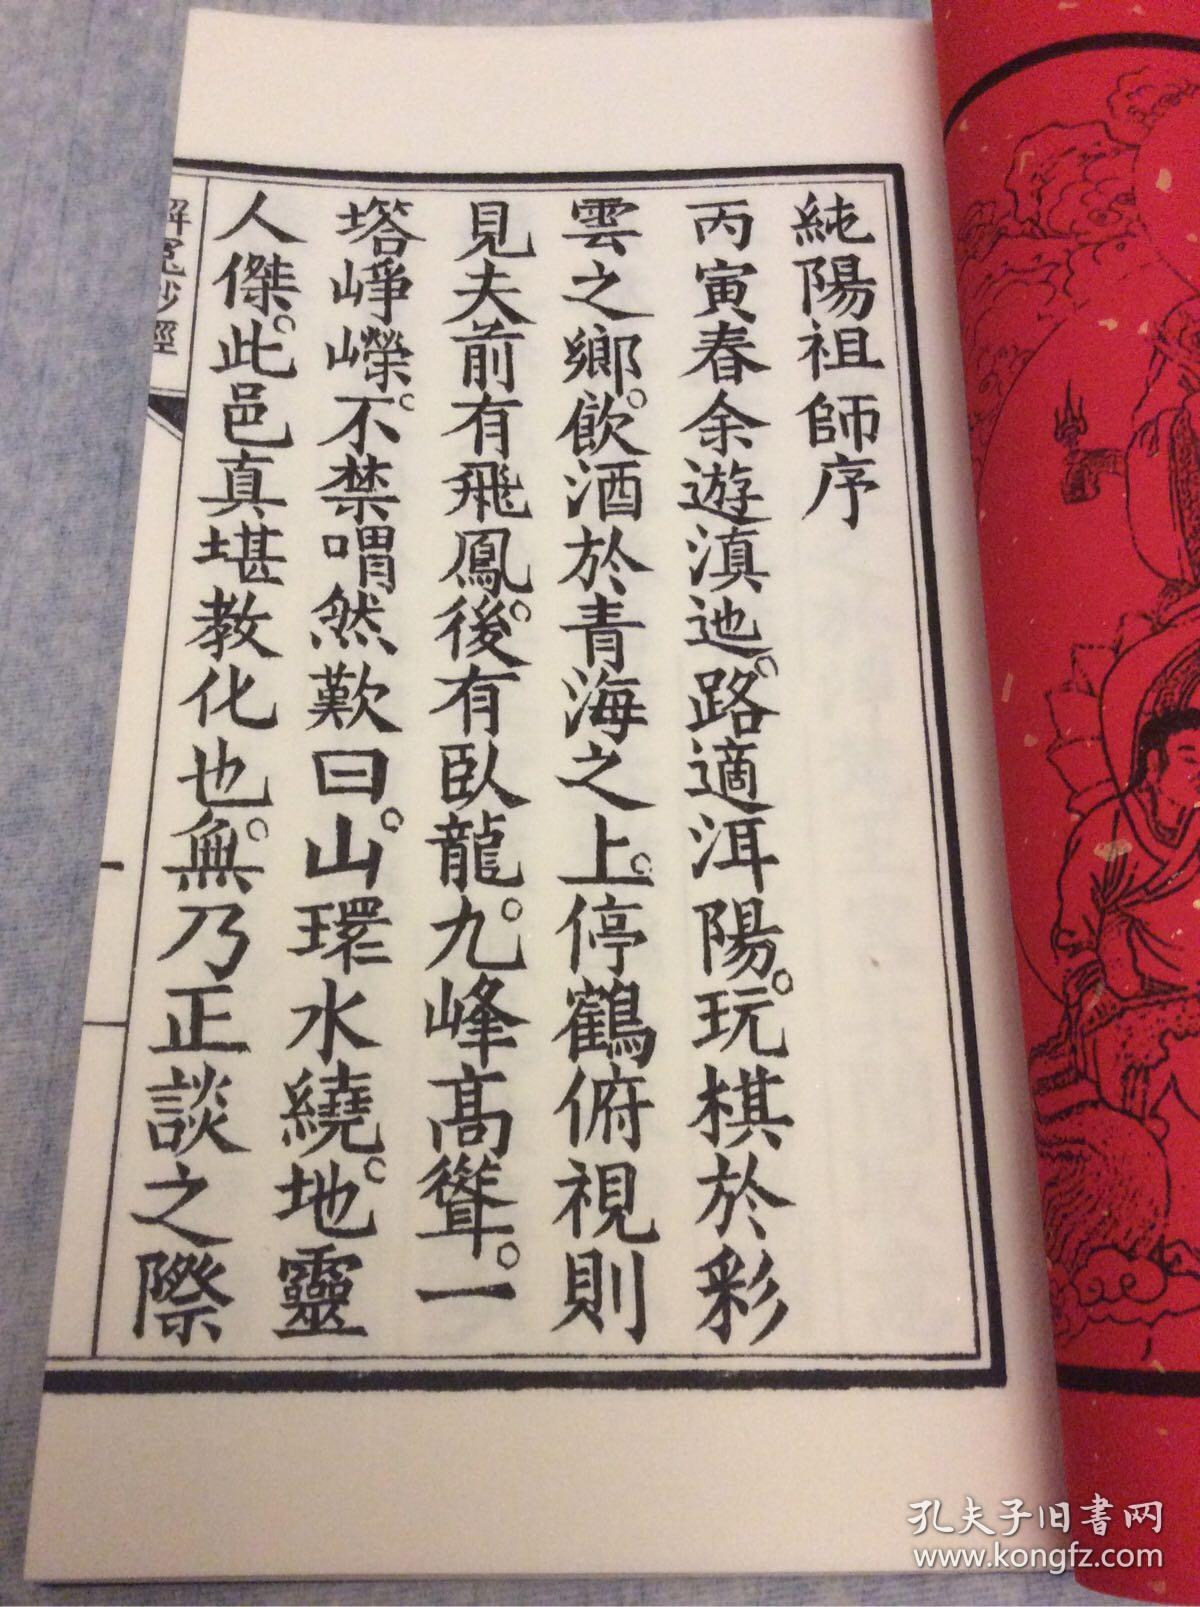 純陽祖師序
丙寅春余遊滇池。路適洱陽。玩棋於彩
雲之鄉。飲酒於青海之上。停鶴俯視則
見夫前有飛鳳。後有臥龍。九峰高聳。一
塔崢嶸。不禁喟然歎曰。山環水繞。地靈
人傑。此邑真堪教化也。無乃正談之際
解冤妙經
一
孔夫子旧书网
www.kongfz.com